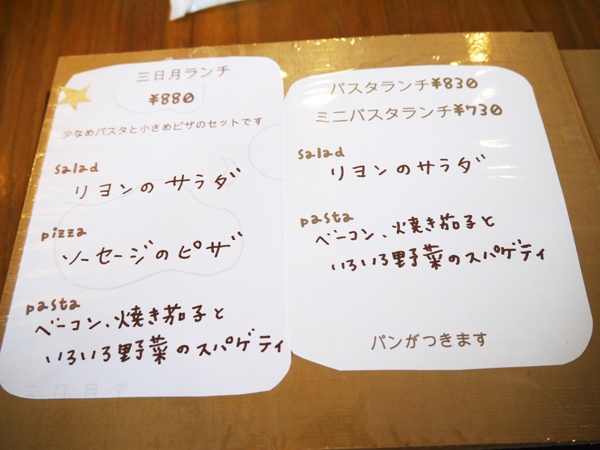 三日月ランチ
¥880
少なめパスタと小さめピザのセットです
salad
リヨンのサラダ
pizza
ソーセージのピザ
pasta
ベーコン、焼き茄子と
いろいろ野菜のスパゲティ
パスタランチ¥830
ミニパスタランチ¥730
salad
リヨンのサラダ
pasta
ベーコン、焼き茄子と
いろいろ野菜のスパゲティ
パンがつきます